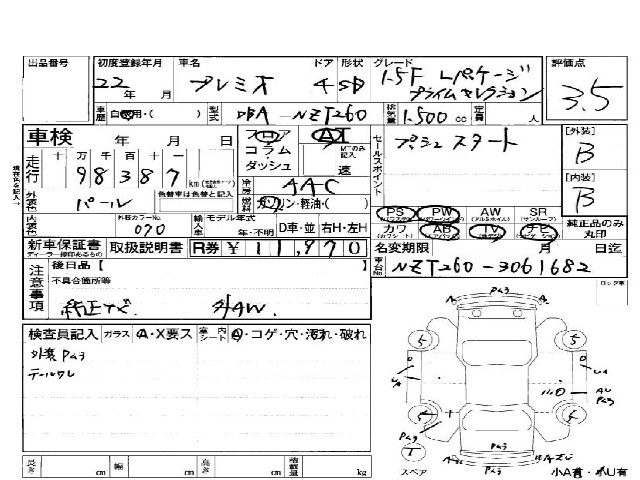 出品番号 初度登録年月 車名 ドア 形状 グレード 評価点
22年 月 プレミオ 4 SD 1.5F Lパケージ
プライムセレクション 3.5
車歴 自家用・( ) 型式 DBA-NZT260 排気量 1.500cc 定員 人
車検 年 月 日 フロア AT セールスポイント プッシュスタート [外装]
コラム・ MTのみ記入 B
走行 十 万 千 百 十 一 ダッシュ 速
98387 km 冷房 AAC [内装]
外装色 パール 色替車は色替と記入 ガソリン・軽油・( ) B
PS PW AW SR
内装色 外装カラーNo. 070 輸入車 モデル年式 年・不明 D車・並 右H・左H カワ AB TV ナビ 純正品のみ丸印
新車保証書 取扱説明書 R券 ¥11,970 名変期限 月 日迄
ディーラー捺印あるもの
注意事項 後日品【 】 車台No. NZT260-3061682
不具合箇所等 ロック車
純正ナビ 外AW
検査員記入 ガラス A・X要ス 室内シート A・コゲ・穴・汚れ・破れ
外装Pムラ
テールワレ
長さ cm 幅 cm 高さ cm 積載量 kg
スペア 小A有・小U有